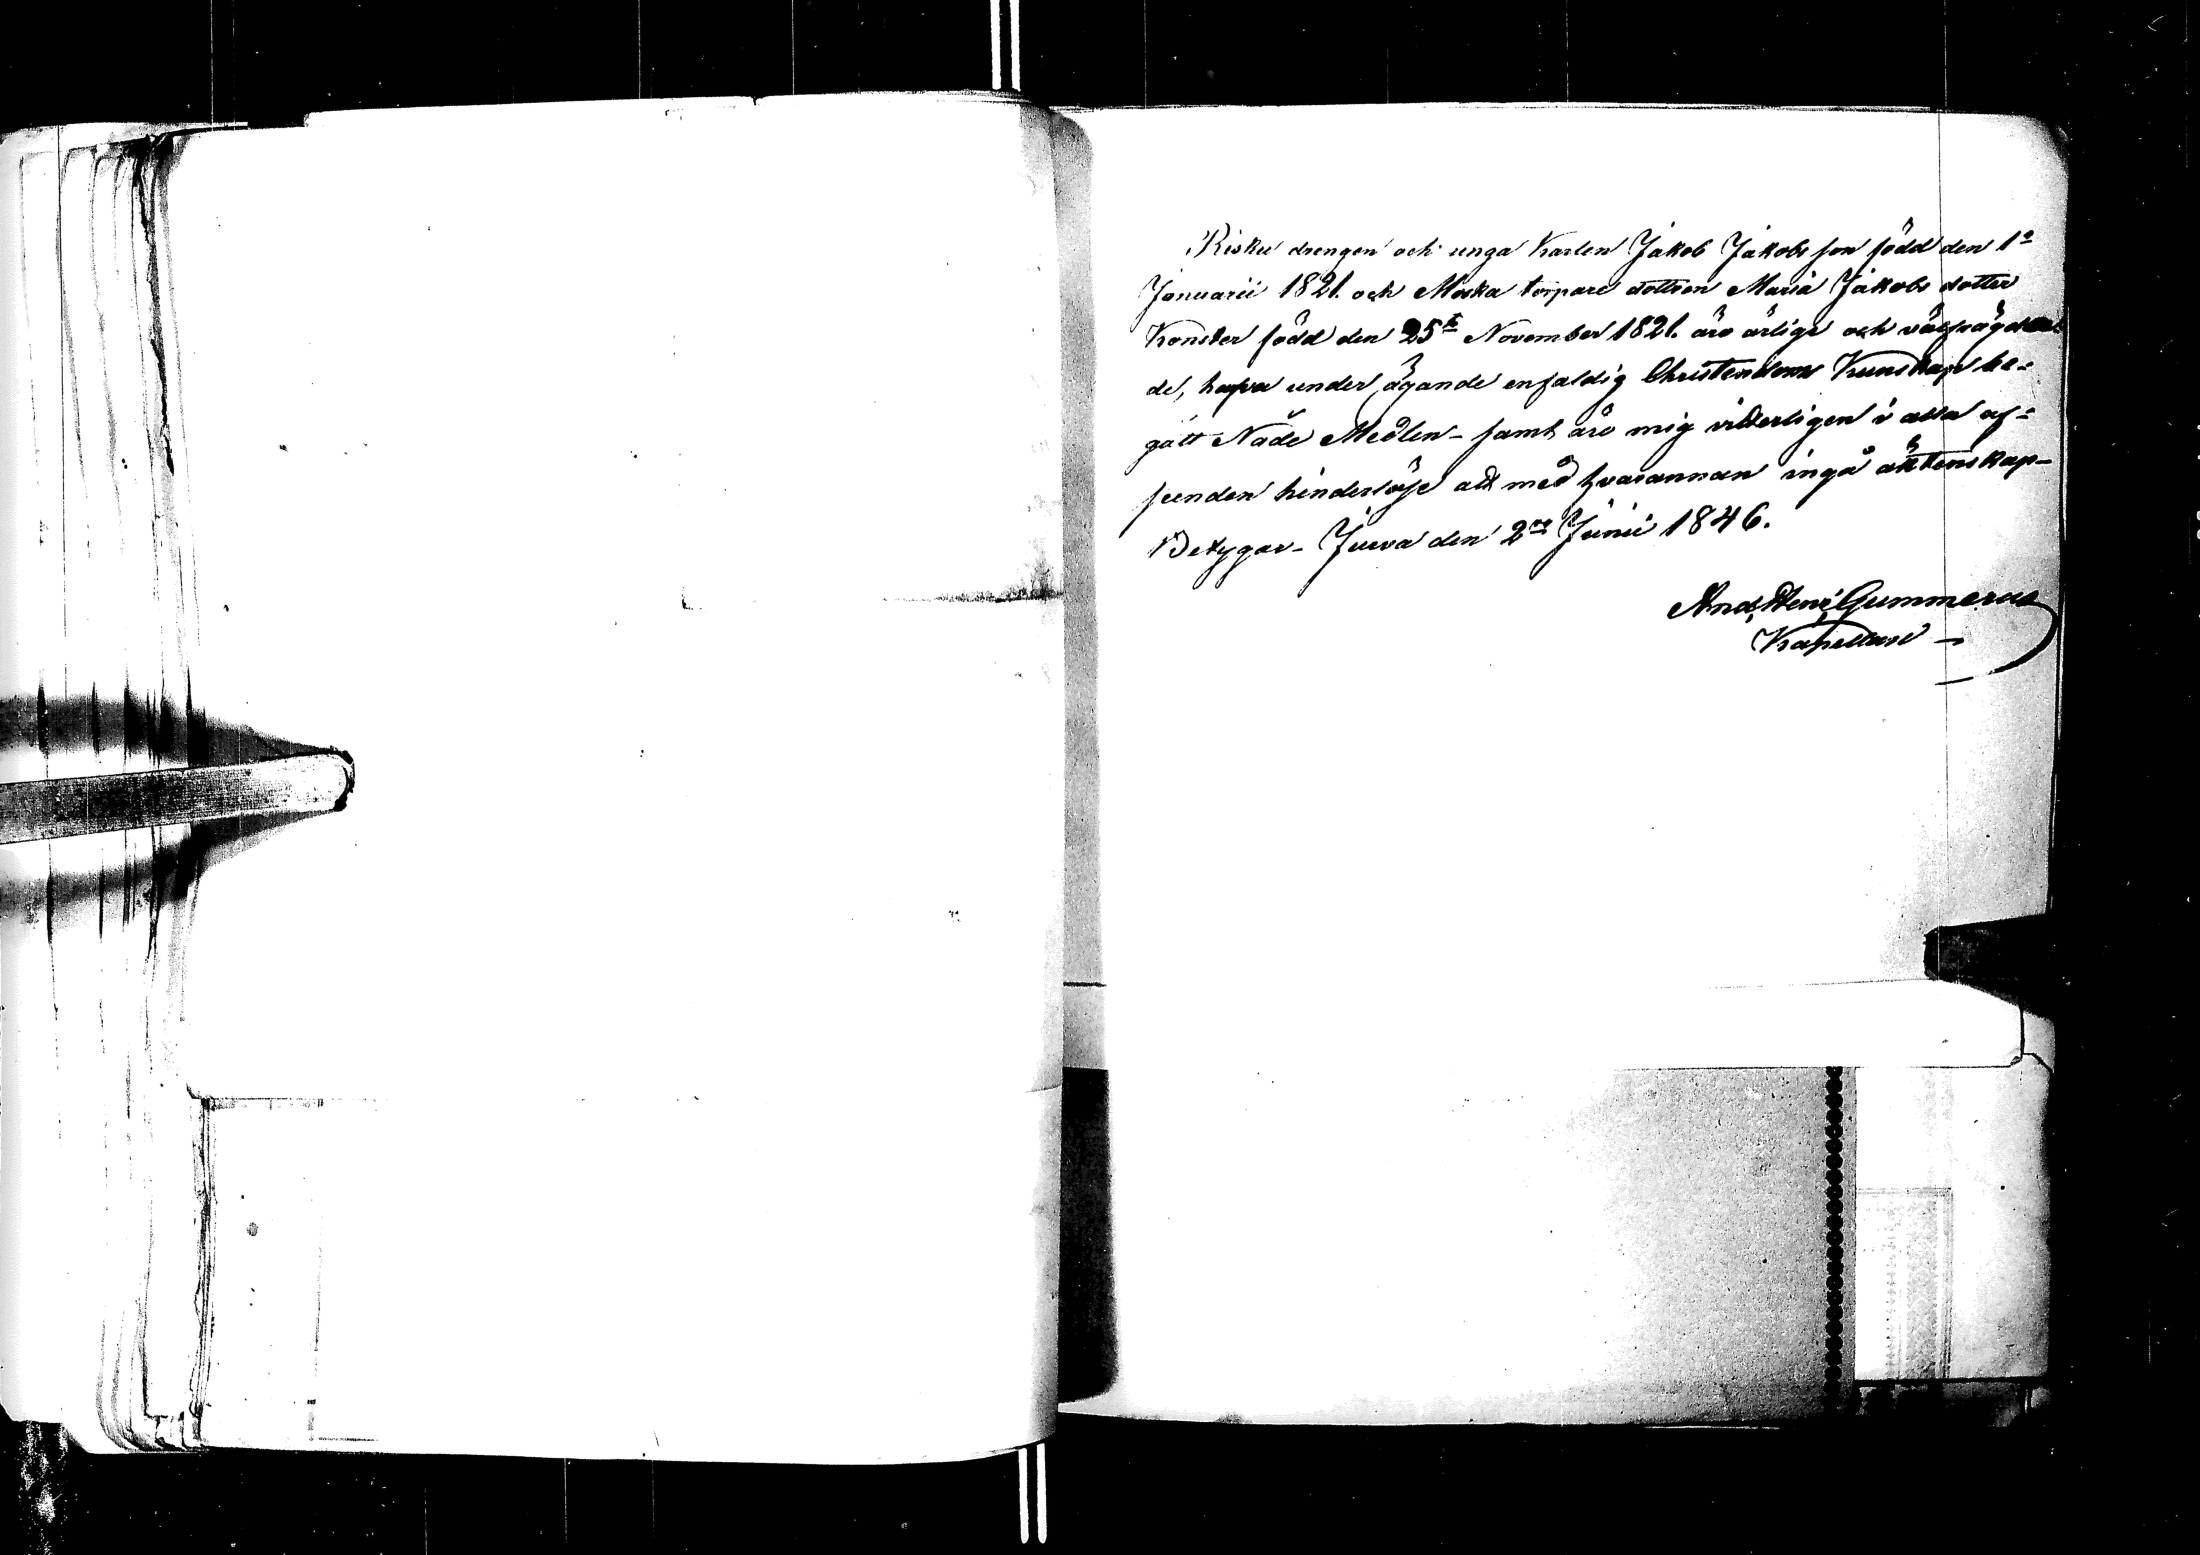 Risku drengen och unga Karlen Jakob Jakobs son född den 1ᵃ
Januarii 1821. och Moska torpare dottren Maria Jakobs dotter
Konster född den 25ᵗ November 1821. äro ärlige och välfräg
de, hafva under ägande enfaldig Christendoms Kunskap be=
gått Nåde Medlen – samt äro mig vitterligen i alla af=
seenden hinderlöse att med hvarannan ingå äktenskap –
Betygar – Jurva den 2ᵃ Junii 1846.
And, Henr, Gummerus
Kapellan –